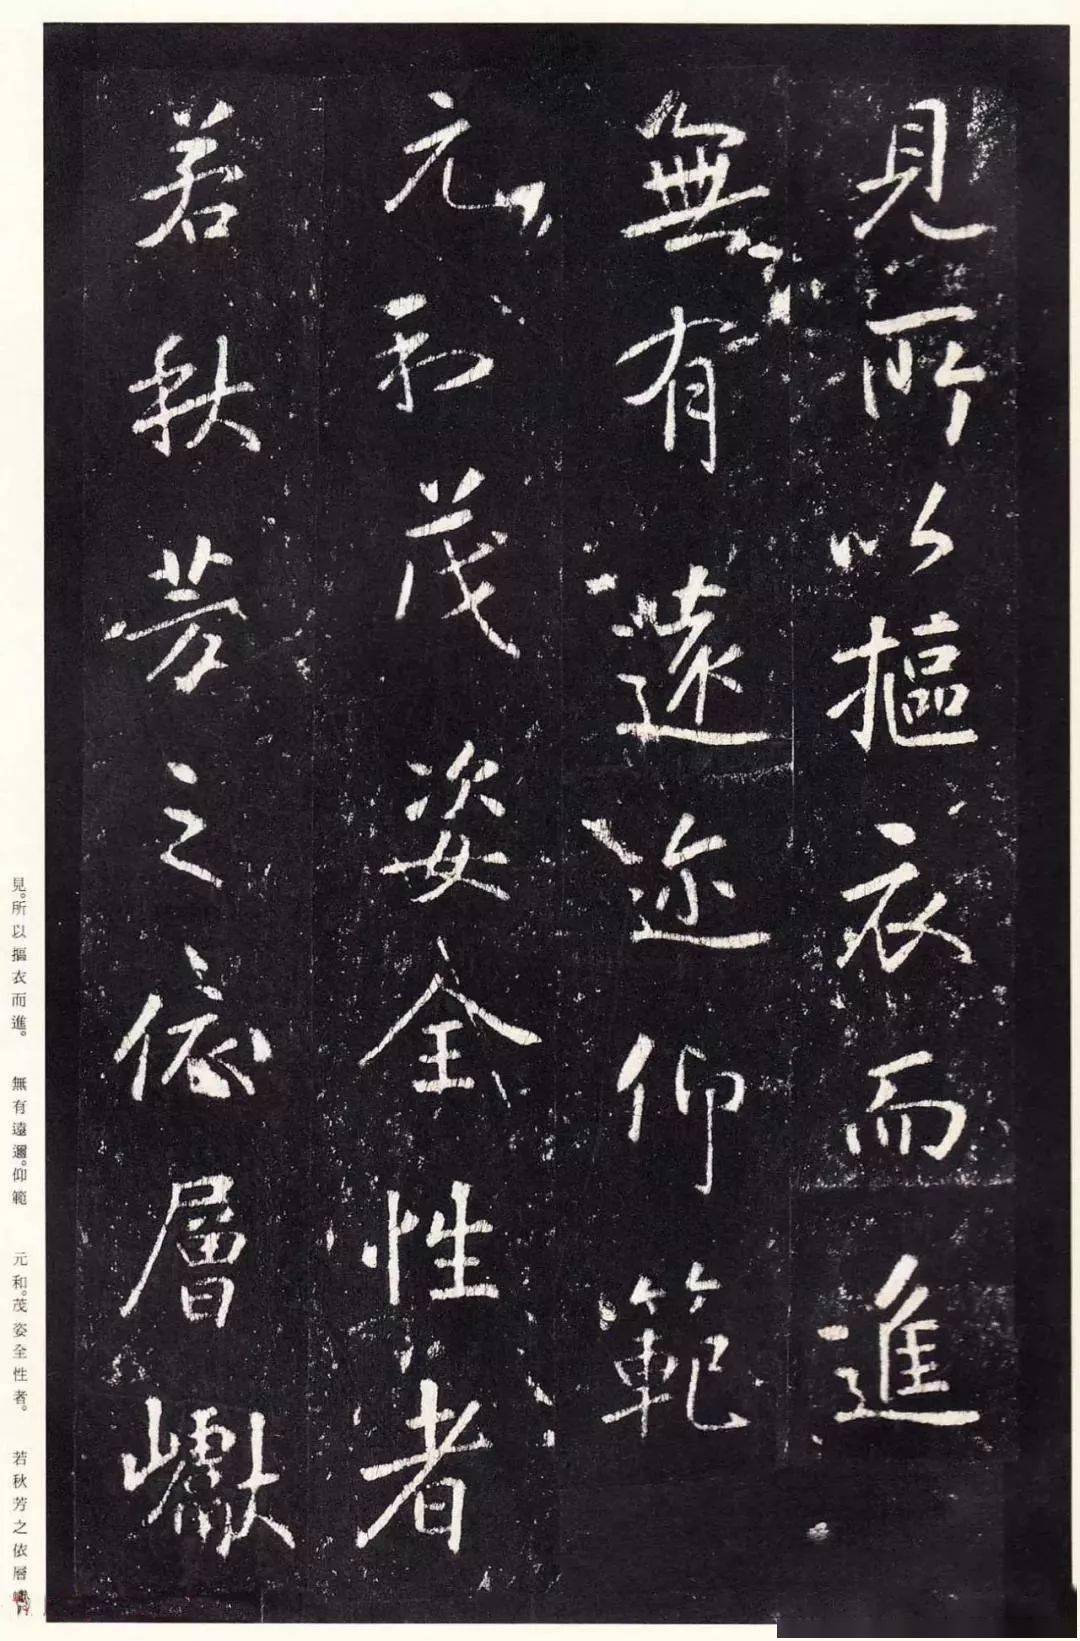 見所以摳衣而進
無有遠迩仰範
元和茂姿全性者
若秋芳之依層巘
見。所以摳衣而進。 無有遠邇。仰範 元和。茂姿全性者。 若秋芳之依層